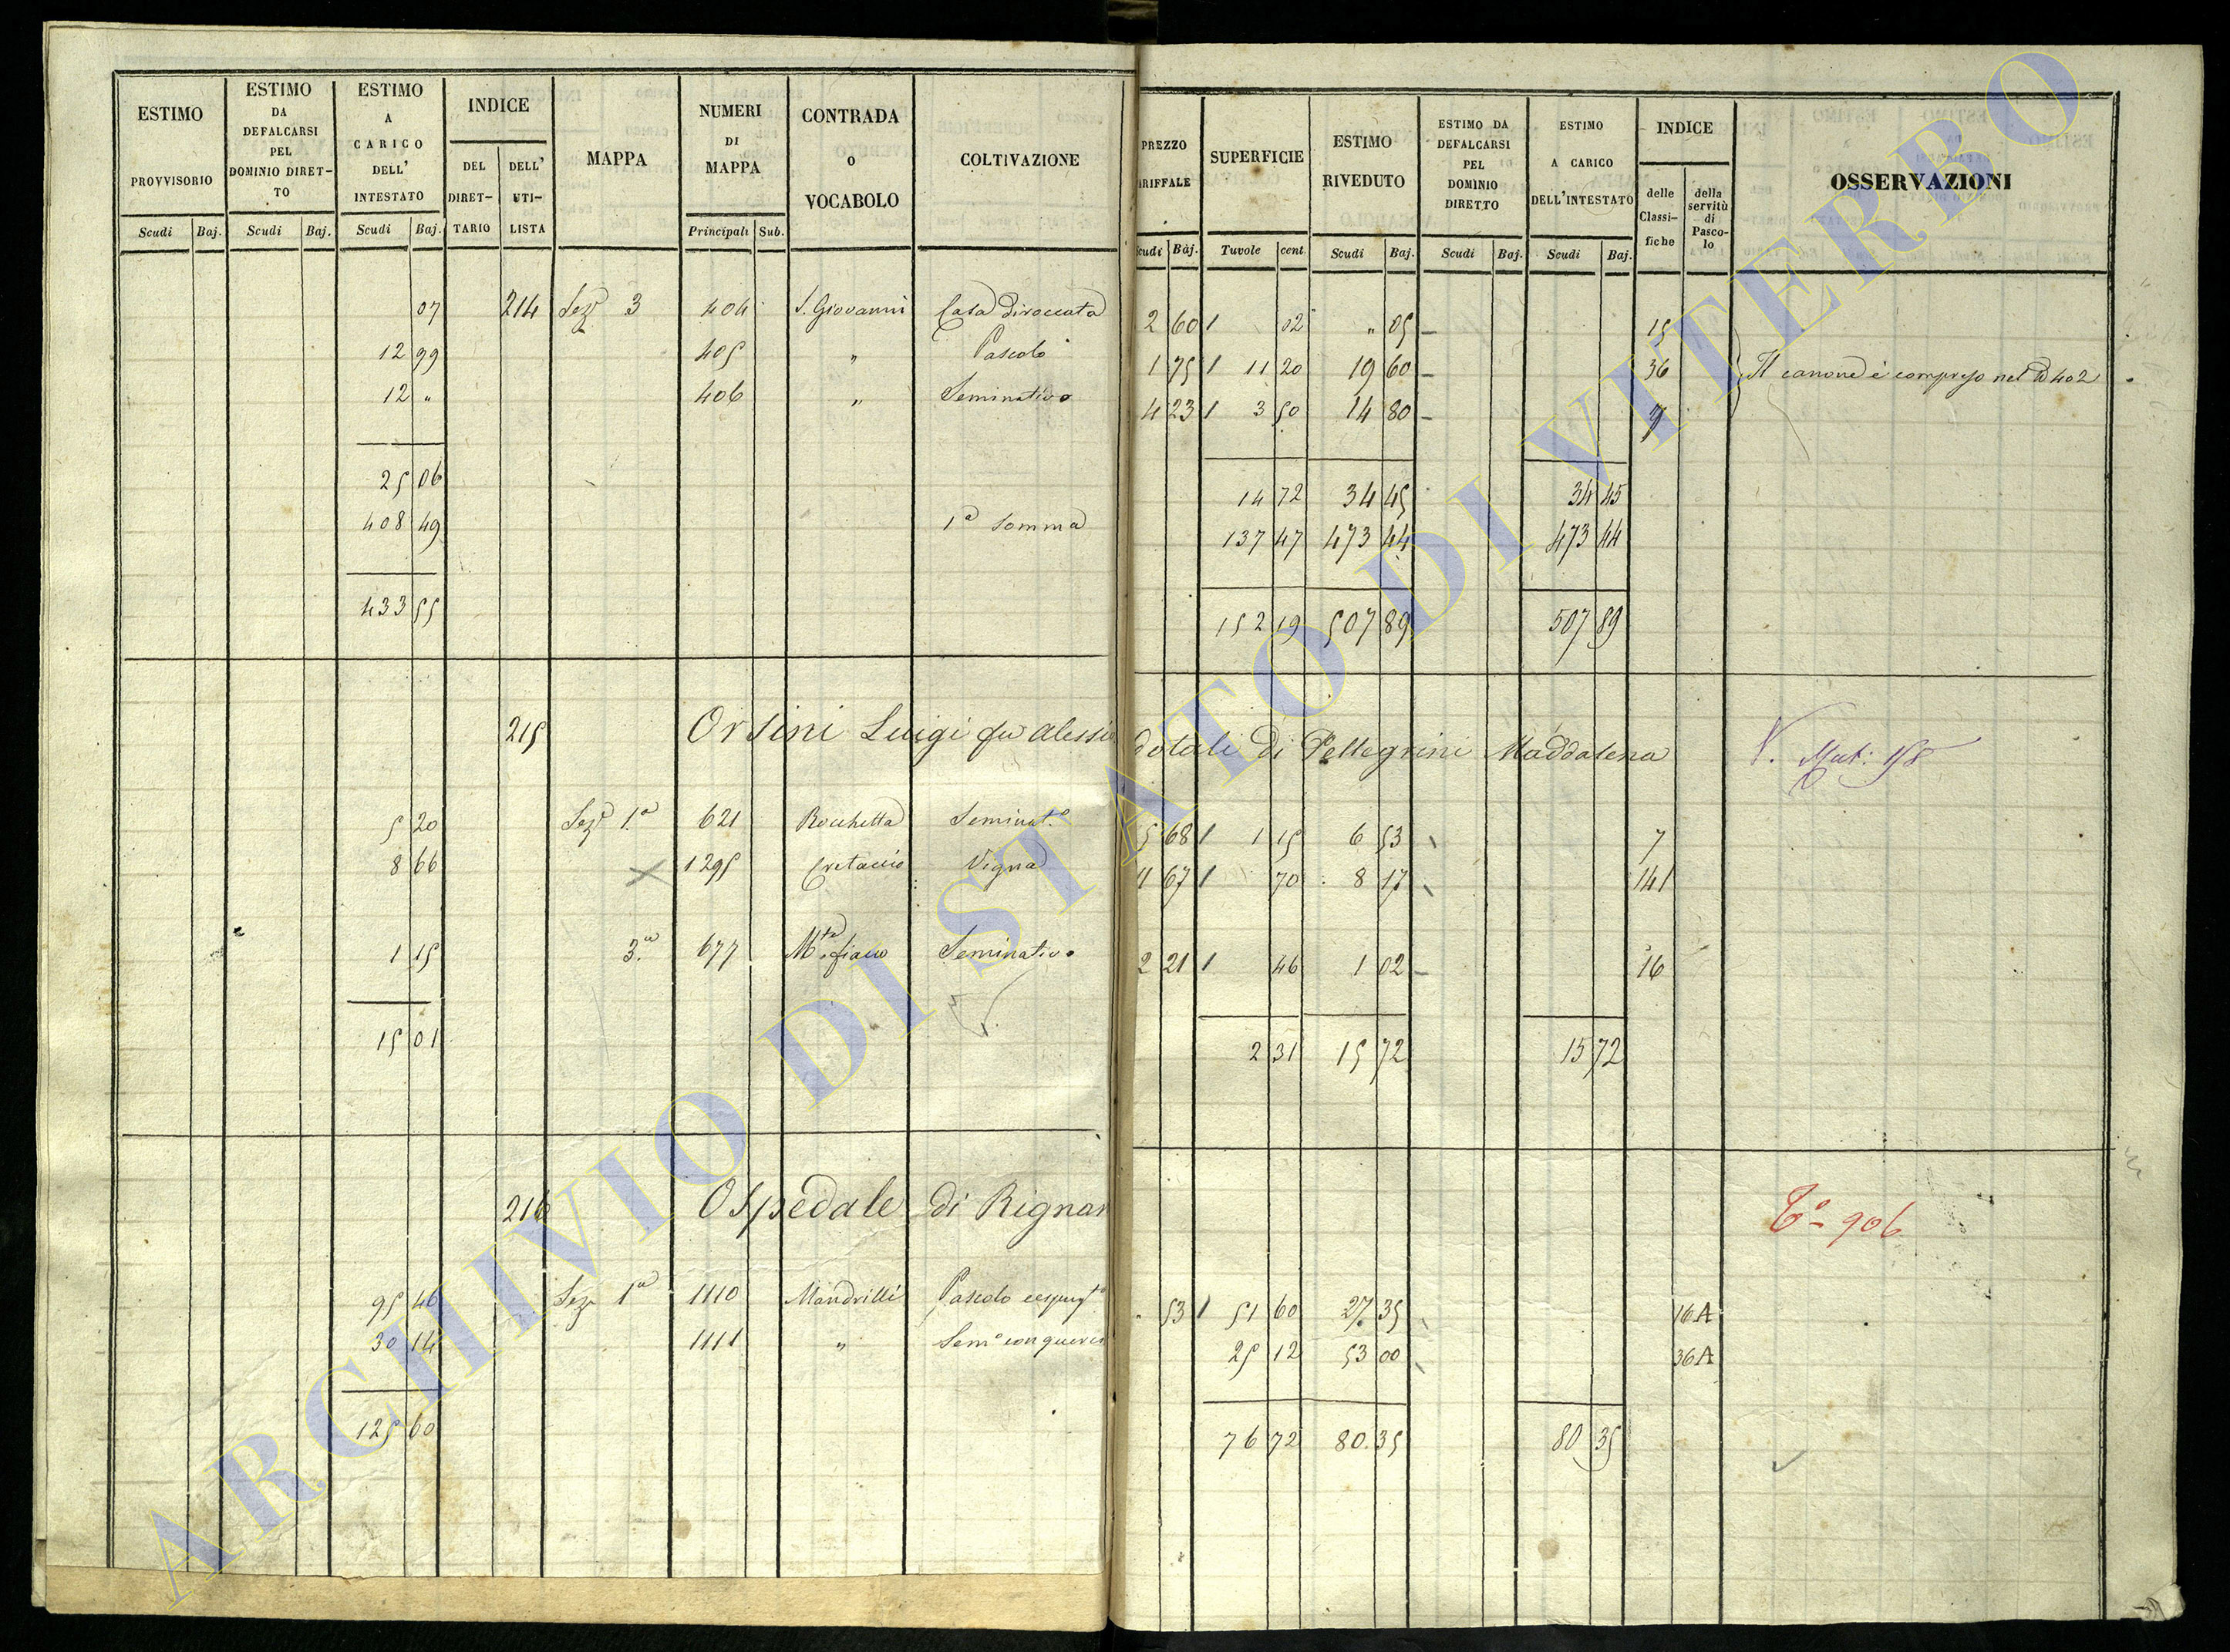 ESTIMO PROVVISORIO
ESTIMO DA DEFALCARSI PEL DOMINIO DIRETTO
ESTIMO A CARICO DELL' INTESTATO
INDICE
DEL DIRETTARIO
DELL' UTILISTA
MAPPA
NUMERI DI MAPPA
CONTRADA O VOCABOLO
COLTIVAZIONE
PREZZO
SUPERFICIE
ESTIMO RIVEDUTO
ESTIMO DA DEFALCARSI PEL DOMINIO DIRETTO
ESTIMO A CARICO DELL'INTESTATO
INDICE
delle Classifiche
della servitù di Pascolo
OSSERVAZIONI
Scudi Baj. Scudi Baj. Scudi Baj. Principali Sub. Baj. Tavole cent Scudi Baj. Scudi Baj. Scudi Baj.
07 214 Sez 3 404 S. Giovanni Casa diroccata 2 60 1 02 " 05 15
12 99 405 " Pascolo 1 75 1 11 20 19 60 36 Il canone è compreso nel N 402
12 " 406 " Seminativo 4 23 1 3 50 14 80
25 06 14 72 34 45 34 45
408 49 1a Somma 137 47 473 44 473 44
433 55 152 19 507 89 507 89
215 Orsini Luigi fu dotali di Pellegrini Maddalena V. Mut:
5 20 Sez 1a 621 Rocchetta Seminat.o 5 68 1 1 15 6 53 7
8 66 1295 Cretaccio Vigna 11 67 1 70 8 17 141
1 15 3a 677 Seminativo 2 21 1 46 1 02 16
15 01 2 31 15 72 15 72
216 Ospedale di Rignan To 906
95 46 Sez 1a 1110 Mandrilli Pascolo 53 1 51 60 27 35 16A
30 14 1111 " Sem.o con querci 25 12 53 00 36A
125 60 76 72 80.35 80 35
ARCHIVIO DI STATO DI VITERBO